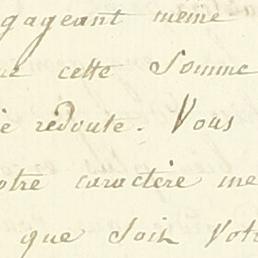 gageant meme
ue cette Somme
è redoute. Vous
otre caractère me
que soit Votr